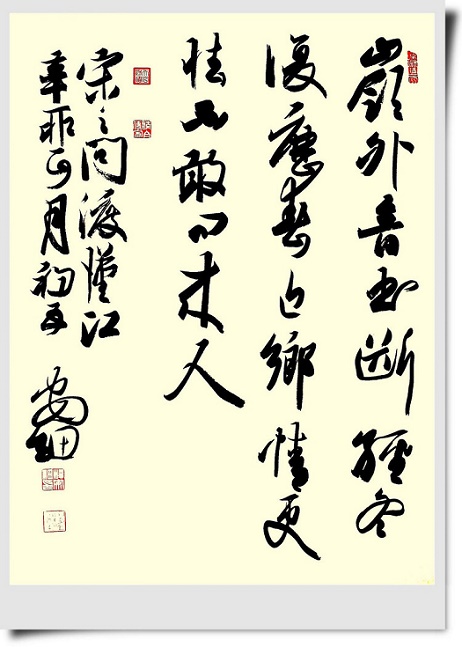 嶺外音書斷經冬
復歷春近鄉情更
怯不敢問來人
宋之問渡漢江
辛卯月初五